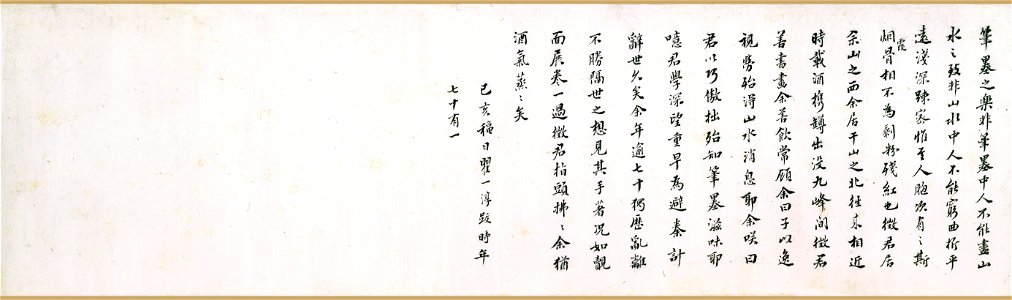 筆墨之樂非筆墨中人不能盡山
水之致非山水中人不能窮曲折平
遠淺深踈密惟至人胸次有之斯
烟霞骨相不為剩粉殘紅也徵君居
佘山之西余居干山之北往來相近
時載酒携罇出没九峰間徵君
善書畫余善飲常顧余曰子以逸
視勞殆得山水消息耶余咲曰
君以巧傲拙殆知筆墨滋味耶
噫君學深望重早為避秦計
辭世久矣余年逾七十獨歷亂離
不勝隔世之想見其手著况如覩
面展卷一過徵君指頭拂拂余猶
酒氣蒸蒸矣
己亥穐日曜一淳跋時年
七十有一